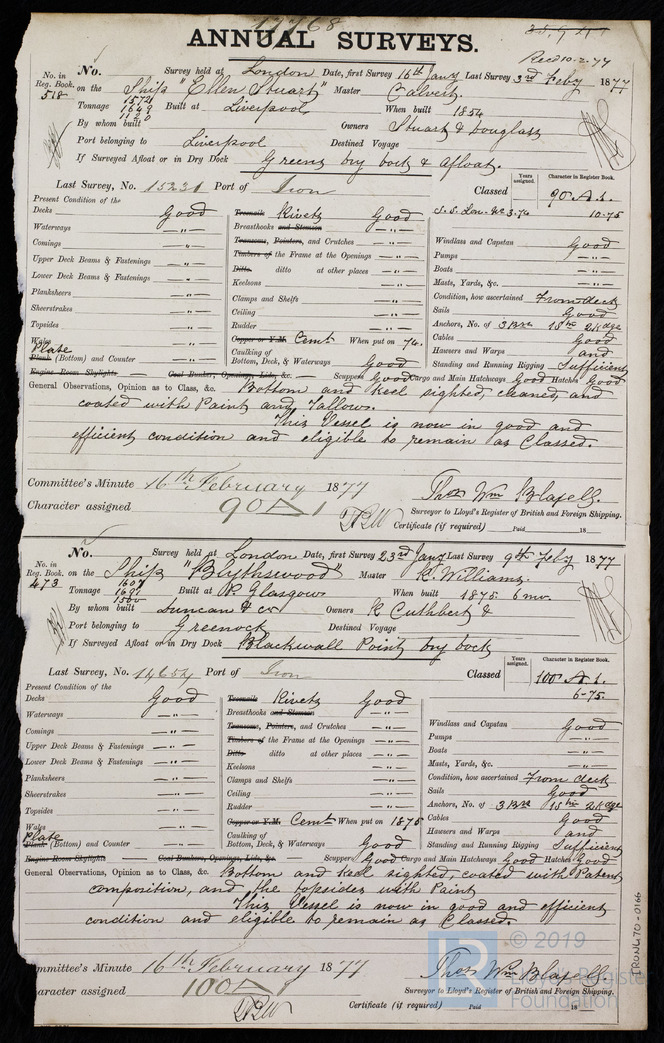 17768
ANNUAL SURVEYS.
Recd 10.2.77
No. Survey held at London Date, first Survey 16th Jany Last Survey 3rd Feby 1877
No. in Reg. Book. 518 on the Ship "Ellen Stuart" Master Calvert.
Tonnage 1574 1649 Built at Liverpool When built 1854
By whom built Owners Stuart & Douglass
Port belonging to Liverpool Destined Voyage
If Surveyed Afloat or in Dry Dock Greens dry dock & afloat.
Years assigned. Character in Register Book.
Last Survey, No. 15231 Port of Iron Classed 90 A.1.
Present Condition of the
Decks Good Treenails Rivets Good 10-75
Waterways — " — Breasthooks and Stemson — " — Windlass and Capstan Good
Comings — " — Transoms, Pointers, and Crutches — " — Pumps — " —
Upper Deck Beams & Fastenings — " — Timbers of the Frame at the Openings — " — Boats — " —
Lower Deck Beams & Fastenings — " — Ditto ditto at other places — " — Masts, Yards, &c. — " —
Planksheers — " — Keelsons — " — Condition, how ascertained From deck
Sheerstrakes — " — Clamps and Shelfs — " — Sails Good
Topsides — " — Ceiling — " — Anchors, No. of 3 Brs 1 Sm 2 Kdge
Wales — " — Rudder — " — Cables Good
Plate Plank (Bottom) and Counter — " — Copper or Y.M. Cemt When put on 74. Hawsers and Warps and
Caulking of Bottom, Deck, & Waterways Good Standing and Running Rigging Sufficient
Engine Room Skylights — Coal Bunker, Openings, Lids, &c. Scuppers Good Cargo and Main Hatchways Good Hatches Good
General Observations, Opinion as to Class, &c. Bottom and keel sighted, cleaned, and
coated with Paint and Tallow.
This Vessel is now in good and
efficient condition and eligible to remain as Classed.
Committee's Minute 16th February 1877 Thos Wm Blafell.
Character assigned 90 A 1 Surveyor to Lloyd's Register of British and Foreign Shipping.
Certificate (if required) Paid 18
No. Survey held at London Date, first Survey 23rd Jany Last Survey 9th Feby 1877
No. in Reg. Book. 473 on the Ship "Blythswood" Master R. Williams.
Tonnage 1697 1500 Built at P. Glasgow When built 1875 6 mo.
By whom built Duncan & Co Owners R Cuthbert &
Port belonging to Greenock Destined Voyage
If Surveyed Afloat or in Dry Dock Blackwall Point dry dock
Years assigned. Character in Register Book.
Last Survey, No. 14654 Port of Iron Classed 100 A.1.
Present Condition of the 6-75
Decks Good Treenails Rivets Good
Waterways — " — Breasthooks and Stemson — " — Windlass and Capstan Good
Comings — " — Transoms, Pointers, and Crutches — " — Pumps — " —
Upper Deck Beams & Fastenings — " — Timbers of the Frame at the Openings — " — Boats — " —
Lower Deck Beams & Fastenings — " — Ditto ditto at other places — " — Masts, Yards, &c. — " —
Planksheers — " — Keelsons — " — Condition, how ascertained From deck
Sheerstrakes — " — Clamps and Shelfs — " — Sails Good
Topsides — " — Ceiling — " — Anchors, No. of 3 Brs 1 Sm 2 Kdge
Wales — " — Rudder — " — Cables Good
Plate Plank (Bottom) and Counter — " — Copper or Y.M. Cemt When put on 1875 Hawsers and Warps and
Caulking of Bottom, Deck, & Waterways Good Standing and Running Rigging Sufficient
Engine Room Skylights — Coal Bunkers, Openings, Lids, &c. Scuppers Good Cargo and Main Hatchways Good Hatches Good
General Observations, Opinion as to Class, &c. Bottom and keel sighted, coated with Patent
composition, and the topsides with Paint
This Vessel is now in good and efficient
condition and eligible to remain as Classed.
mmittee's Minute 16th February 1877 Thos Wm Blafell.
aracter assigned 100 A Surveyor to Lloyd's Register of British and Foreign Shipping.
Certificate (if required) Paid 18
IRON670-0166
© 2019
Lloyd's Register
Foundation